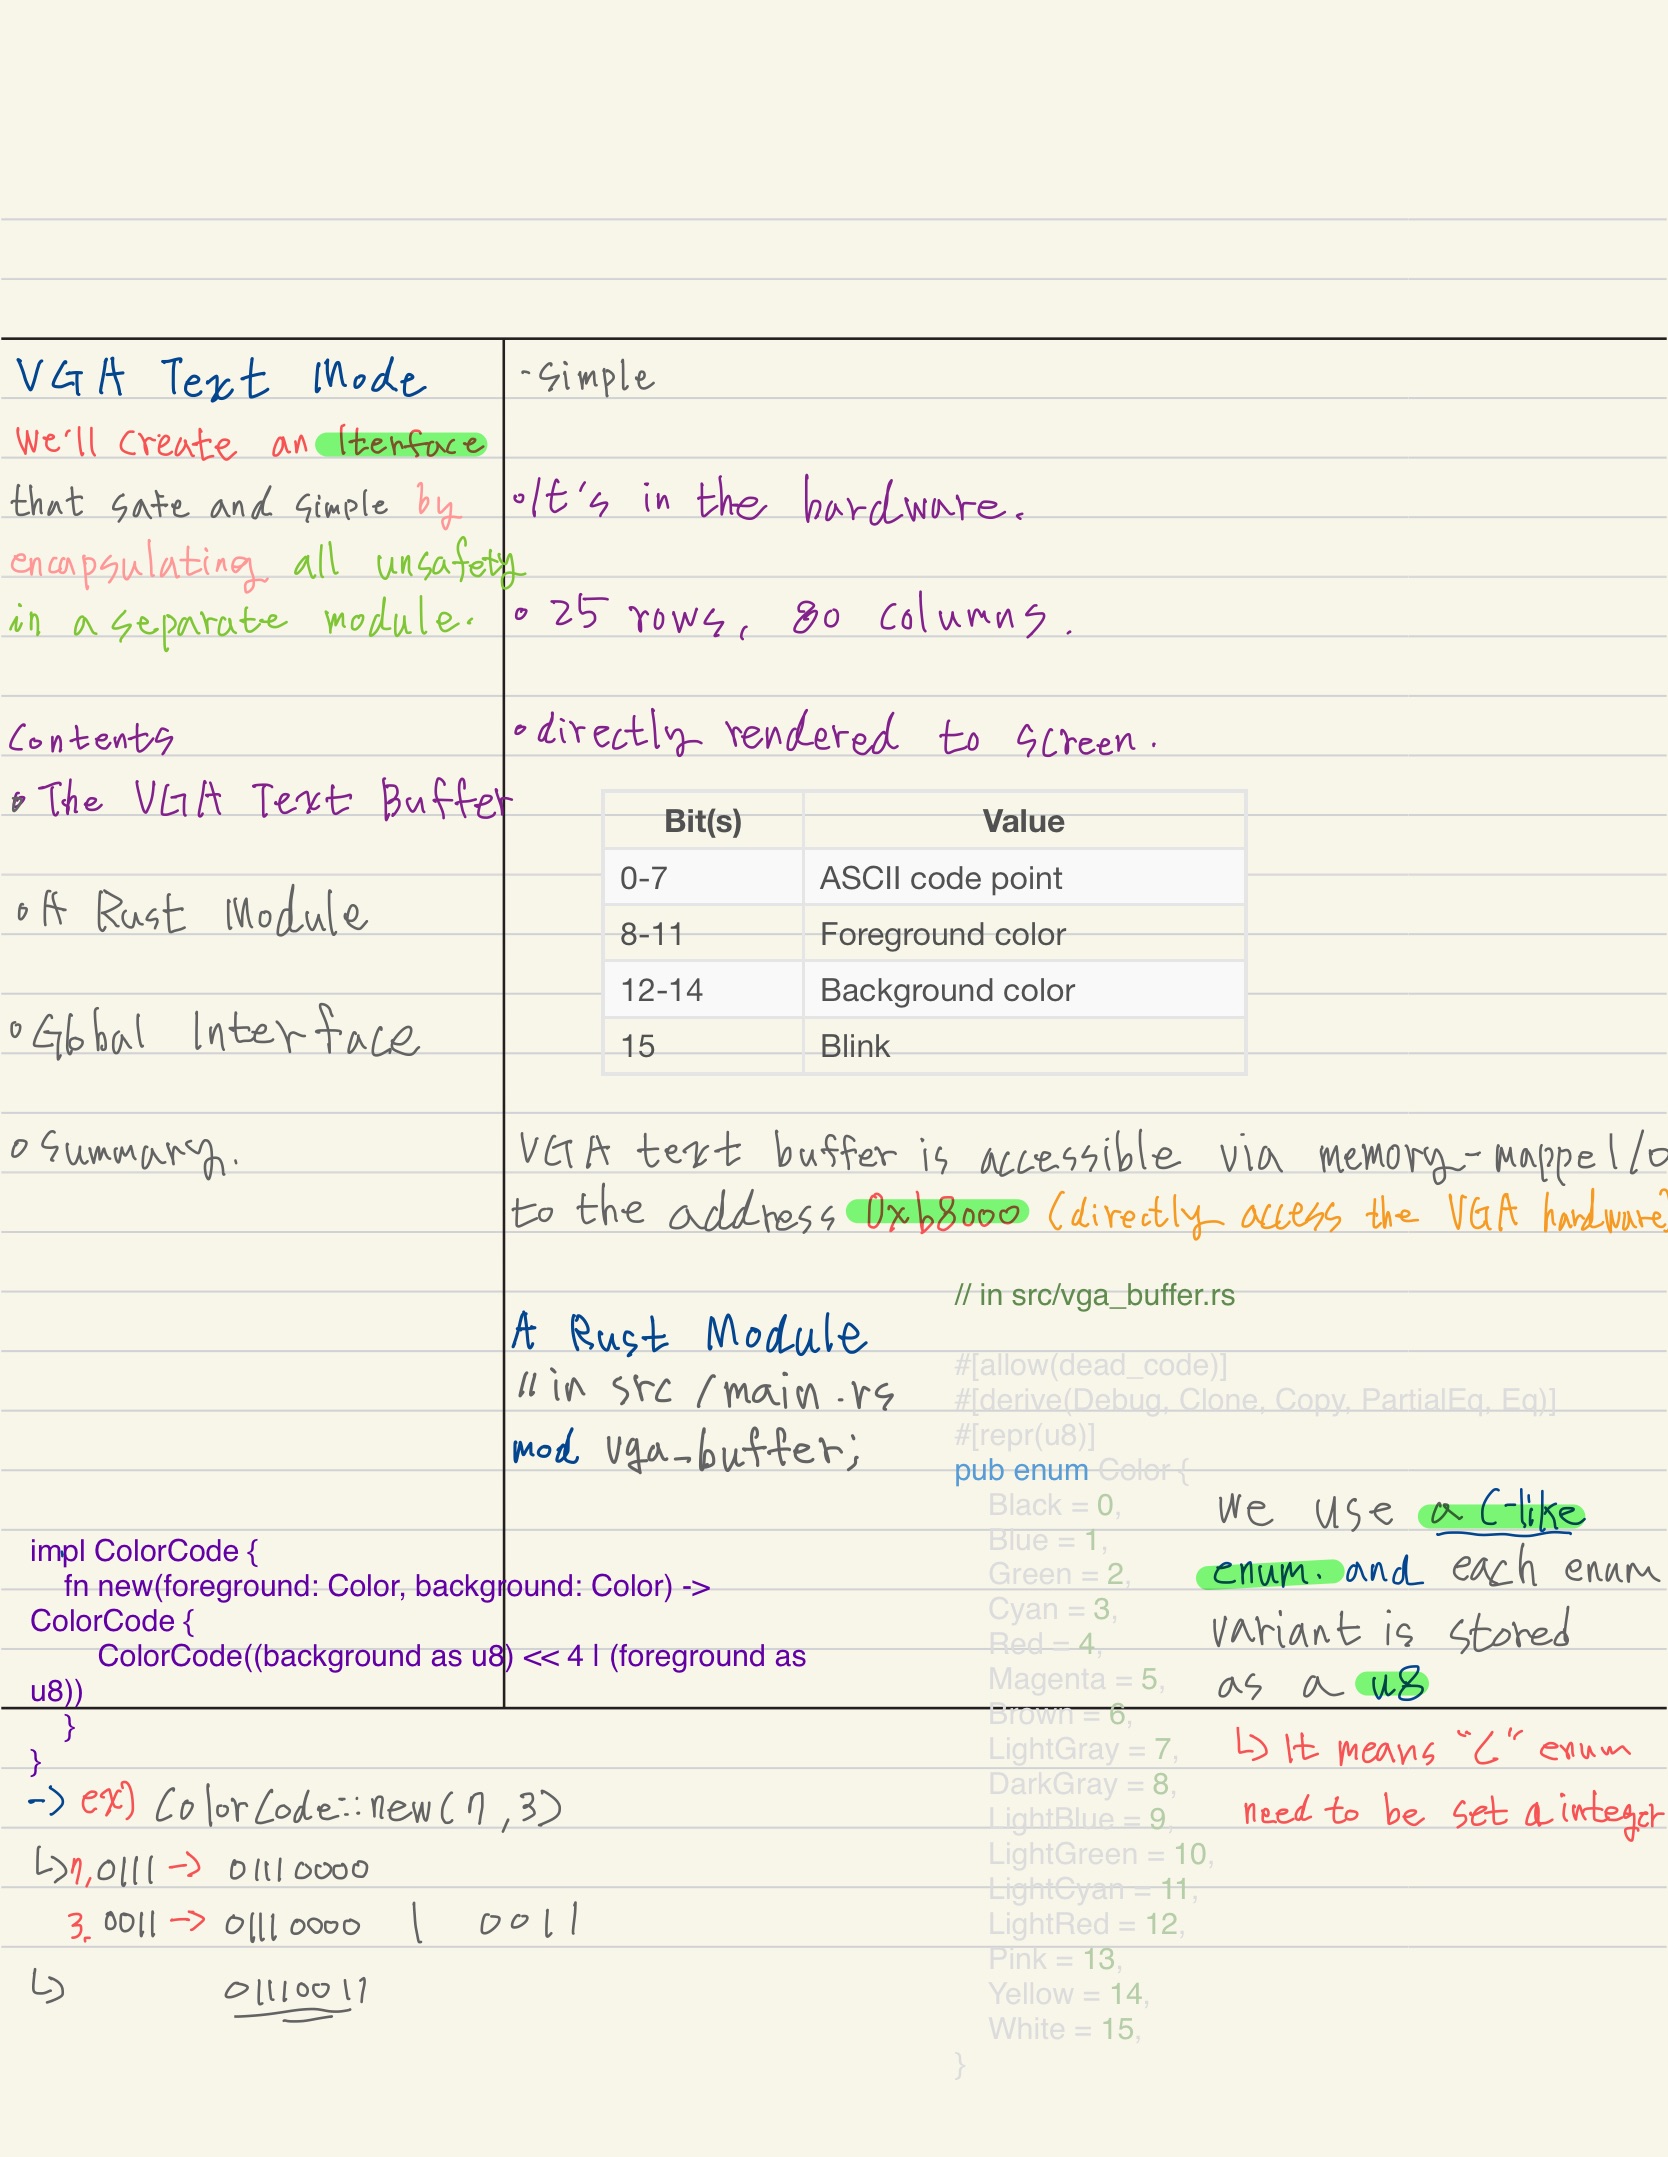 VGA Text Mode
We'll create an Iterface
that safe and simple by
encapsulating all unsafety
in a separate module.
Contents
• The VGA Text Buffer
• A Rust Module
• Global Interface
• Summary.
- Simple
• It's in the hardware.
• 25 rows, 80 columns.
• directly rendered to screen.
Bit(s) Value
0-7 ASCII code point
8-11 Foreground color
12-14 Background color
15 Blink
VGA text buffer is accessible via memory-mappe I/O
to the address 0xb8000 (directly access the VGA hardware)
A Rust Module
// in src/main.rs
mod vga_buffer;
// in src/vga_buffer.rs
#[allow(dead_code)]
#[derive(Debug, Clone, Copy, PartialEq, Eq)]
#[repr(u8)]
pub enum Color {
Black = 0,
Blue = 1,
Green = 2,
Cyan = 3,
Red = 4,
Magenta = 5,
Brown = 6,
LightGray = 7,
DarkGray = 8,
LightBlue = 9,
LightGreen = 10,
LightCyan = 11,
LightRed = 12,
Pink = 13,
Yellow = 14,
White = 15,
}
We use a C-like
enum. and each enum
variant is stored
as a u8
↳ It means "C" enum
need to be set a integer
impl ColorCode {
fn new(foreground: Color, background: Color) ->
ColorCode {
ColorCode((background as u8) << 4 | (foreground as
u8))
}
}
-> ex) ColorCode::new(7,3)
↳ 7, 0111 -> 01110000
3. 0011 -> 01110000 | 0011
↳ 01110011